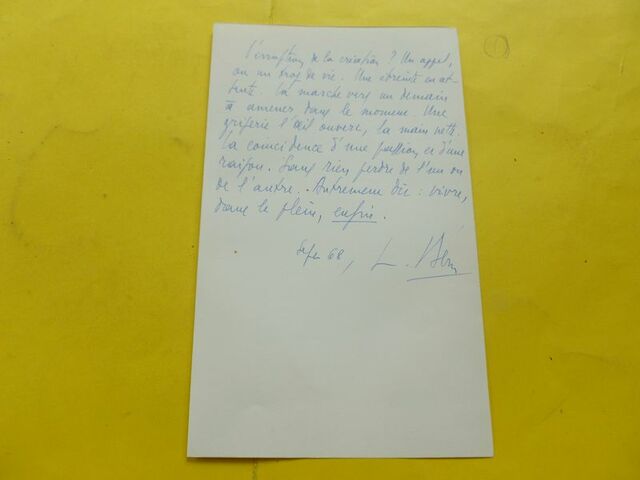 L'irruption de la création ? Un appel,
ou un trop de vie. Une étreinte en at-
tente. La marche vers un demain
à amener dans le moment. Une
l'œil ouvert, la main nette.
La coïncidence d'une passion et d'une
raison. Sans rien perdre de l'un ou
de l'autre. Autrement dit : vivre,
dans le plein, enfin.
68, L.